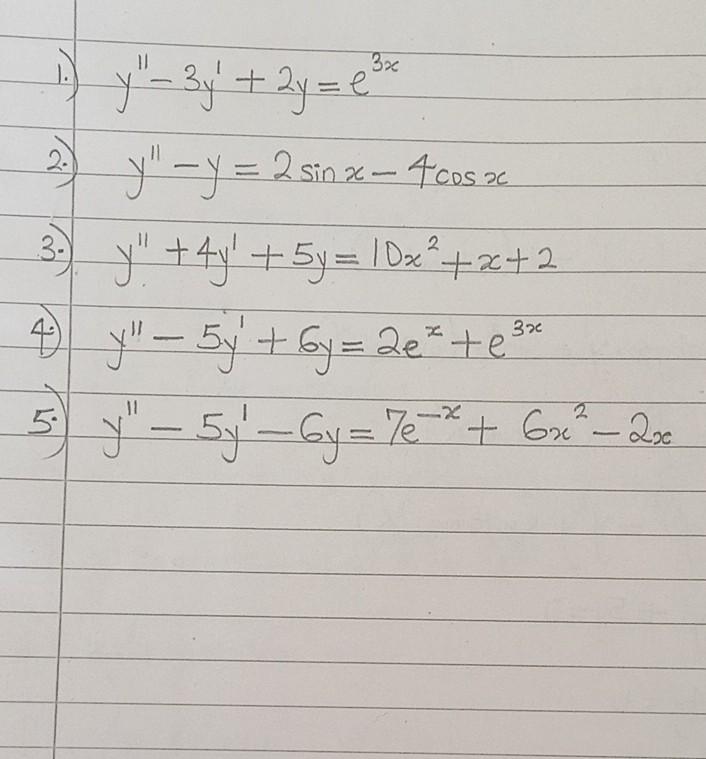 1.) y'' - 3y' + 2y = e^{3x}
2.) y'' - y = 2 sin x - 4 cos x
3.) y'' + 4y' + 5y = 10x² + x + 2
4.) y'' - 5y' + 6y = 2e^x + e^{3x}
5.) y'' - 5y' - 6y = 7e^{-x} + 6x² - 2x